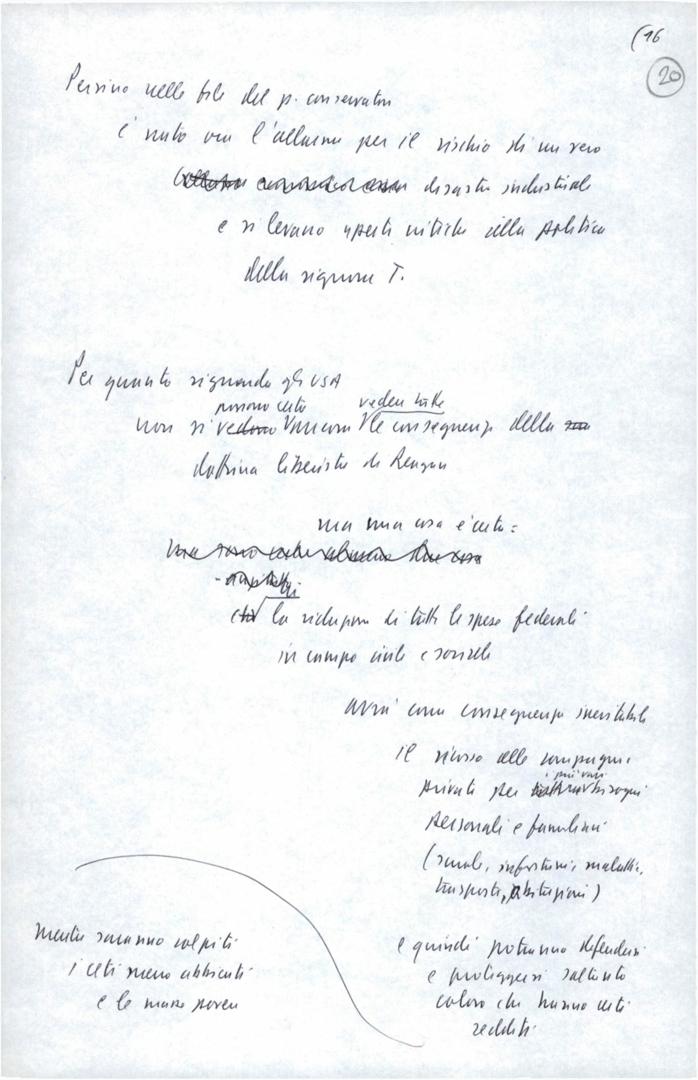 (16
20
Persino nelle file del p. conservatore
è nato ora l'allarme per il rischio di un vero
disastro industriale
e si levano aperte critiche alla politica
della signora T.
Per quanto riguarda gli USA
possono certo vedere tutte
non si vedono ancora le conseguenze della
dottrina liberista di Reagan
ma una cosa è certa:
che la riduzione di tutte le spese federali
in campo civile e sociale
avrà come conseguenza inevitabile
il ricorso alle compagnie
i più vari
private per bisogni
personali e familiari
(scuole, infortuni, malattie,
trasporti, abitazioni)
e quindi potranno difendersi
e proteggersi soltanto
coloro che hanno certi
redditi
mentre saranno colpiti
i ceti meno abbienti
e le masse povere